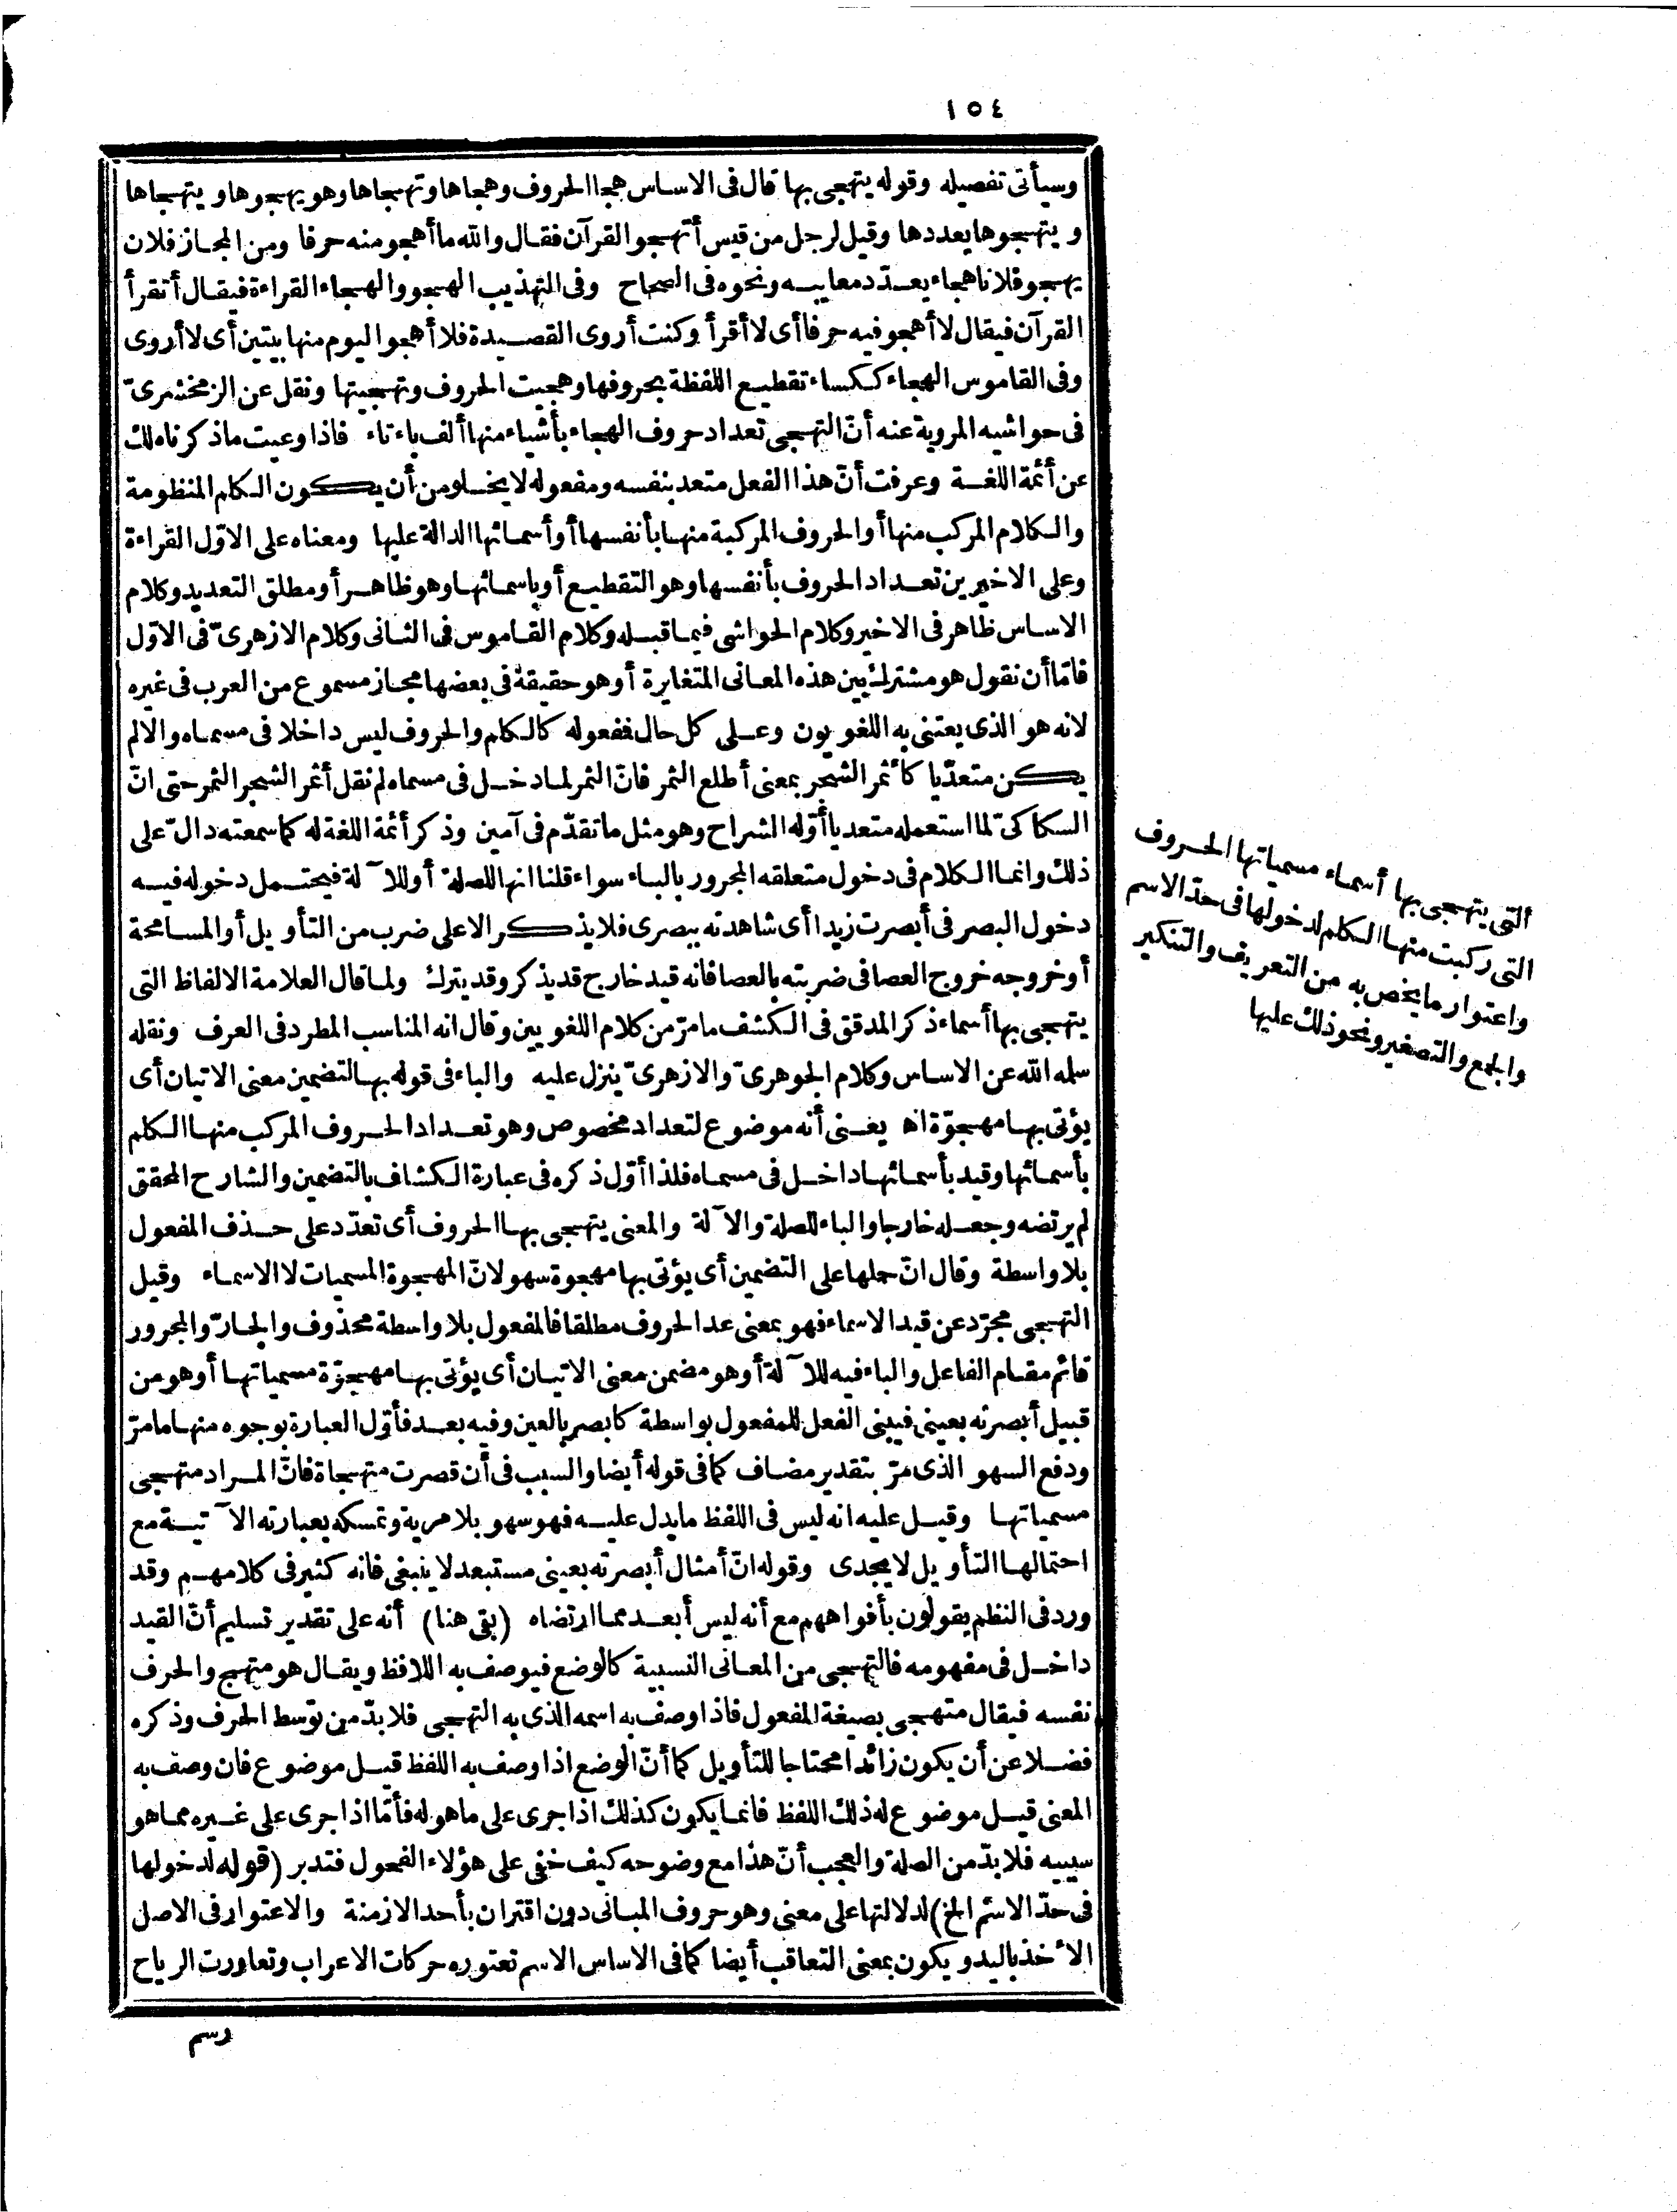 ١٥٤
وسيأتى تفصيله وقوله يتهجى بها قال فى الاساس هجا الحروف وهجاها وتهجاها وهو يهجوها ويتهجاها
ويتهجوها يعددها وقيل لرجل من قيس أتهجو القرآن فقال والله ما أهجو منه حرفا ومن المجاز فلان
يهجو فلانا هجاء يعدّد معايبه ونحوه فى الصحاح وفى التهذيب الهجو والهجاء القراءة فيقال أتقرأ
القرآن فيقال لا أهجو فيه حرفا أى لا أقرأ وكنت أروى القصيدة فلا أهجو اليوم منها بيتين أى لا أروى
وفى القاموس الهجاء ككساء تقطيع اللفظة بحروفها وهجيت الحروف وتهجيتها ونقل عن الزمخشرىّ
فى حواشيه المروية عنه أنّ التهجى تعداد حروف الهجاء بأشياء منها ألف باء تاء فاذا وعيت ما ذكرناه لك
عن أئمة اللغة وعرفت أنّ هذا الفعل متعد بنفسه ومفعوله لا يخلو من أن يكون الكلم المنظومة
والكلام المركب منها أو الحروف المركبة منها بأنفسها أو أسمائها الدالة عليها ومعناه على الاوّل القراءة
وعلى الاخيرين تعداد الحروف بأنفسها وهو التقطيع أو باسمائها وهو ظاهر أو مطلق التعديد وكلام
الاساس ظاهر فى الاخير وكلام الحواشى فيما قبله وكلام القاموس فى الثانى وكلام الازهرىّ فى الاوّل
فامّا أن نقول هو مشترك بين هذه المعانى المتغايرة أو هو حقيقة فى بعضها مجاز مسموع من العرب فى غيره
لانه هو الذى يعتنى به اللغويون وعلى كل حال فمفعوله كالكلم والحروف ليس داخلا فى مسماه والا لم
يكن متعدّيا كأثمر الشجر بمعنى أطلع الثمر فانّ الثمر لما دخل فى مسماه لم نقل أثمر الشجر الثمر حتى انّ
السكاكىّ لما استعمله متعديا أوّله الشراح وهو مثل ما تقدّم فى آمين وذكر أئمة اللغة له كما سمعته دالّ على
ذلك وانما الكلام فى دخول متعلقه المجرور بالباء سواء قلنا انها للصلة أو للآلة فيحتمل دخوله فيه
دخول البصر فى أبصرت زيدا أى شاهدته ببصرى فلا يذكر الا على ضرب من التأويل أو المسامحة
أو خروجه خروج العصا فى ضربته بالعصا فانه قيد خارج قد يذكر وقد يترك ولما قال العلامة الالفاظ التى
يتهجى بها أسماء ذكر المدقق فى الكشف ما مرّ من كلام اللغويين وقال انه المناسب المطرد فى العرف ونقله
سلمه الله عن الاساس وكلام الجوهرىّ والازهرىّ ينزل عليه والباء فى قوله بها لتضمين معنى الاتيان أى
يؤتى بها مهجوّة اه يعنى أنه موضوع لتعداد مخصوص وهو تعداد الحروف المركب منها الكلم
بأسمائها وقيد بأسمائها داخل فى مسماه فلذا أوّل ذكره فى عبارة الكشاف بالتضمين والشارح المحقق
لم يرتضه وجعله خارجا والباء للصلة والآلة والمعنى يتهجى بها الحروف أى تعدّد على حذف المفعول
بلا واسطة وقال انّ حملها على التضمين أى يؤتى بها مهجوة سهو لانّ المهجوة المسميات لا الاسماء وقيل
التهجى مجرّد عن قيد الاسماء فهو بمعنى عد الحروف مطلقا فالمفعول بلا واسطة محذوف والجارّ والمجرور
قائم مقام الفاعل والباء فيه للآلة أو هو مضمن معنى الاتيان أى يؤتى بها مهجوّة مسمياتها أو هو من
قبيل أبصرته بعينى فيبنى الفعل للمفعول بواسطة كابصر بالعين وفيه بعد فأوّل العبارة بوجوه منها ما مرّ
ودفع السهو الذى مرّ بتقدير مضاف كما فى قوله أيضا والسبب فى أن قصرت متهجاة فانّ المراد متهجى
مسمياتها وقيل عليه انه ليس فى اللفظ ما يدل عليه فهو سهو بلا مرية وتمسكه بعبارته الآتية مع
احتمالها التأويل لا يجدى وقوله انّ أمثال أبصرته بعينى مستبعد لا ينبغى فانه كثير فى كلامهم وقد
ورد فى النظم يقولون بأفواههم مع أنه ليس أبعد مما ارتضاه (بقى هنا) أنه على تقدير تسليم أنّ القيد
داخل فى مفهومه فالتهجى من المعانى النسبية كالوضع فيوصف به اللافظ ويقال هو متهج والحرف
نفسه فيقال متهجى بصيغة المفعول فاذا وصف به اسمه الذى به التهجى فلا بدّ من توسط الحرف وذكره
فضلا عن أن يكون زائدا محتاجا للتأويل كما أنّ الوضع اذا وصف به اللفظ قيل موضوع فان وصف به
المعنى قيل موضوع له ذلك اللفظ فانما يكون كذلك اذا جرى على ما هو له فأمّا اذا جرى على غيره مما هو
سببيه فلا بدّ من الصلة والعجب أنّ هذا مع وضوحه كيف خفى على هؤلاء الفحول فتدبر (قوله لدخولها
فى حدّ الاسم الخ) لدلالتها على معنى وهو حروف المبانى دون اقتران بأحد الازمنة والاعتوار فى الاصل
الأخذ باليد ويكون بمعنى التعاقب أيضا كما فى الاساس الاسم تعتوره حركات الاعراب وتعاورت الرياح
رسم
التى يتهجى بها أسماء مسمياتها الحروف
التى ركبت منها الكلم لدخولها فى حدّ الاسم
واعتوار ما يخص به من التعريف والتنكير
والجمع والتصغير ونحو ذلك عليها